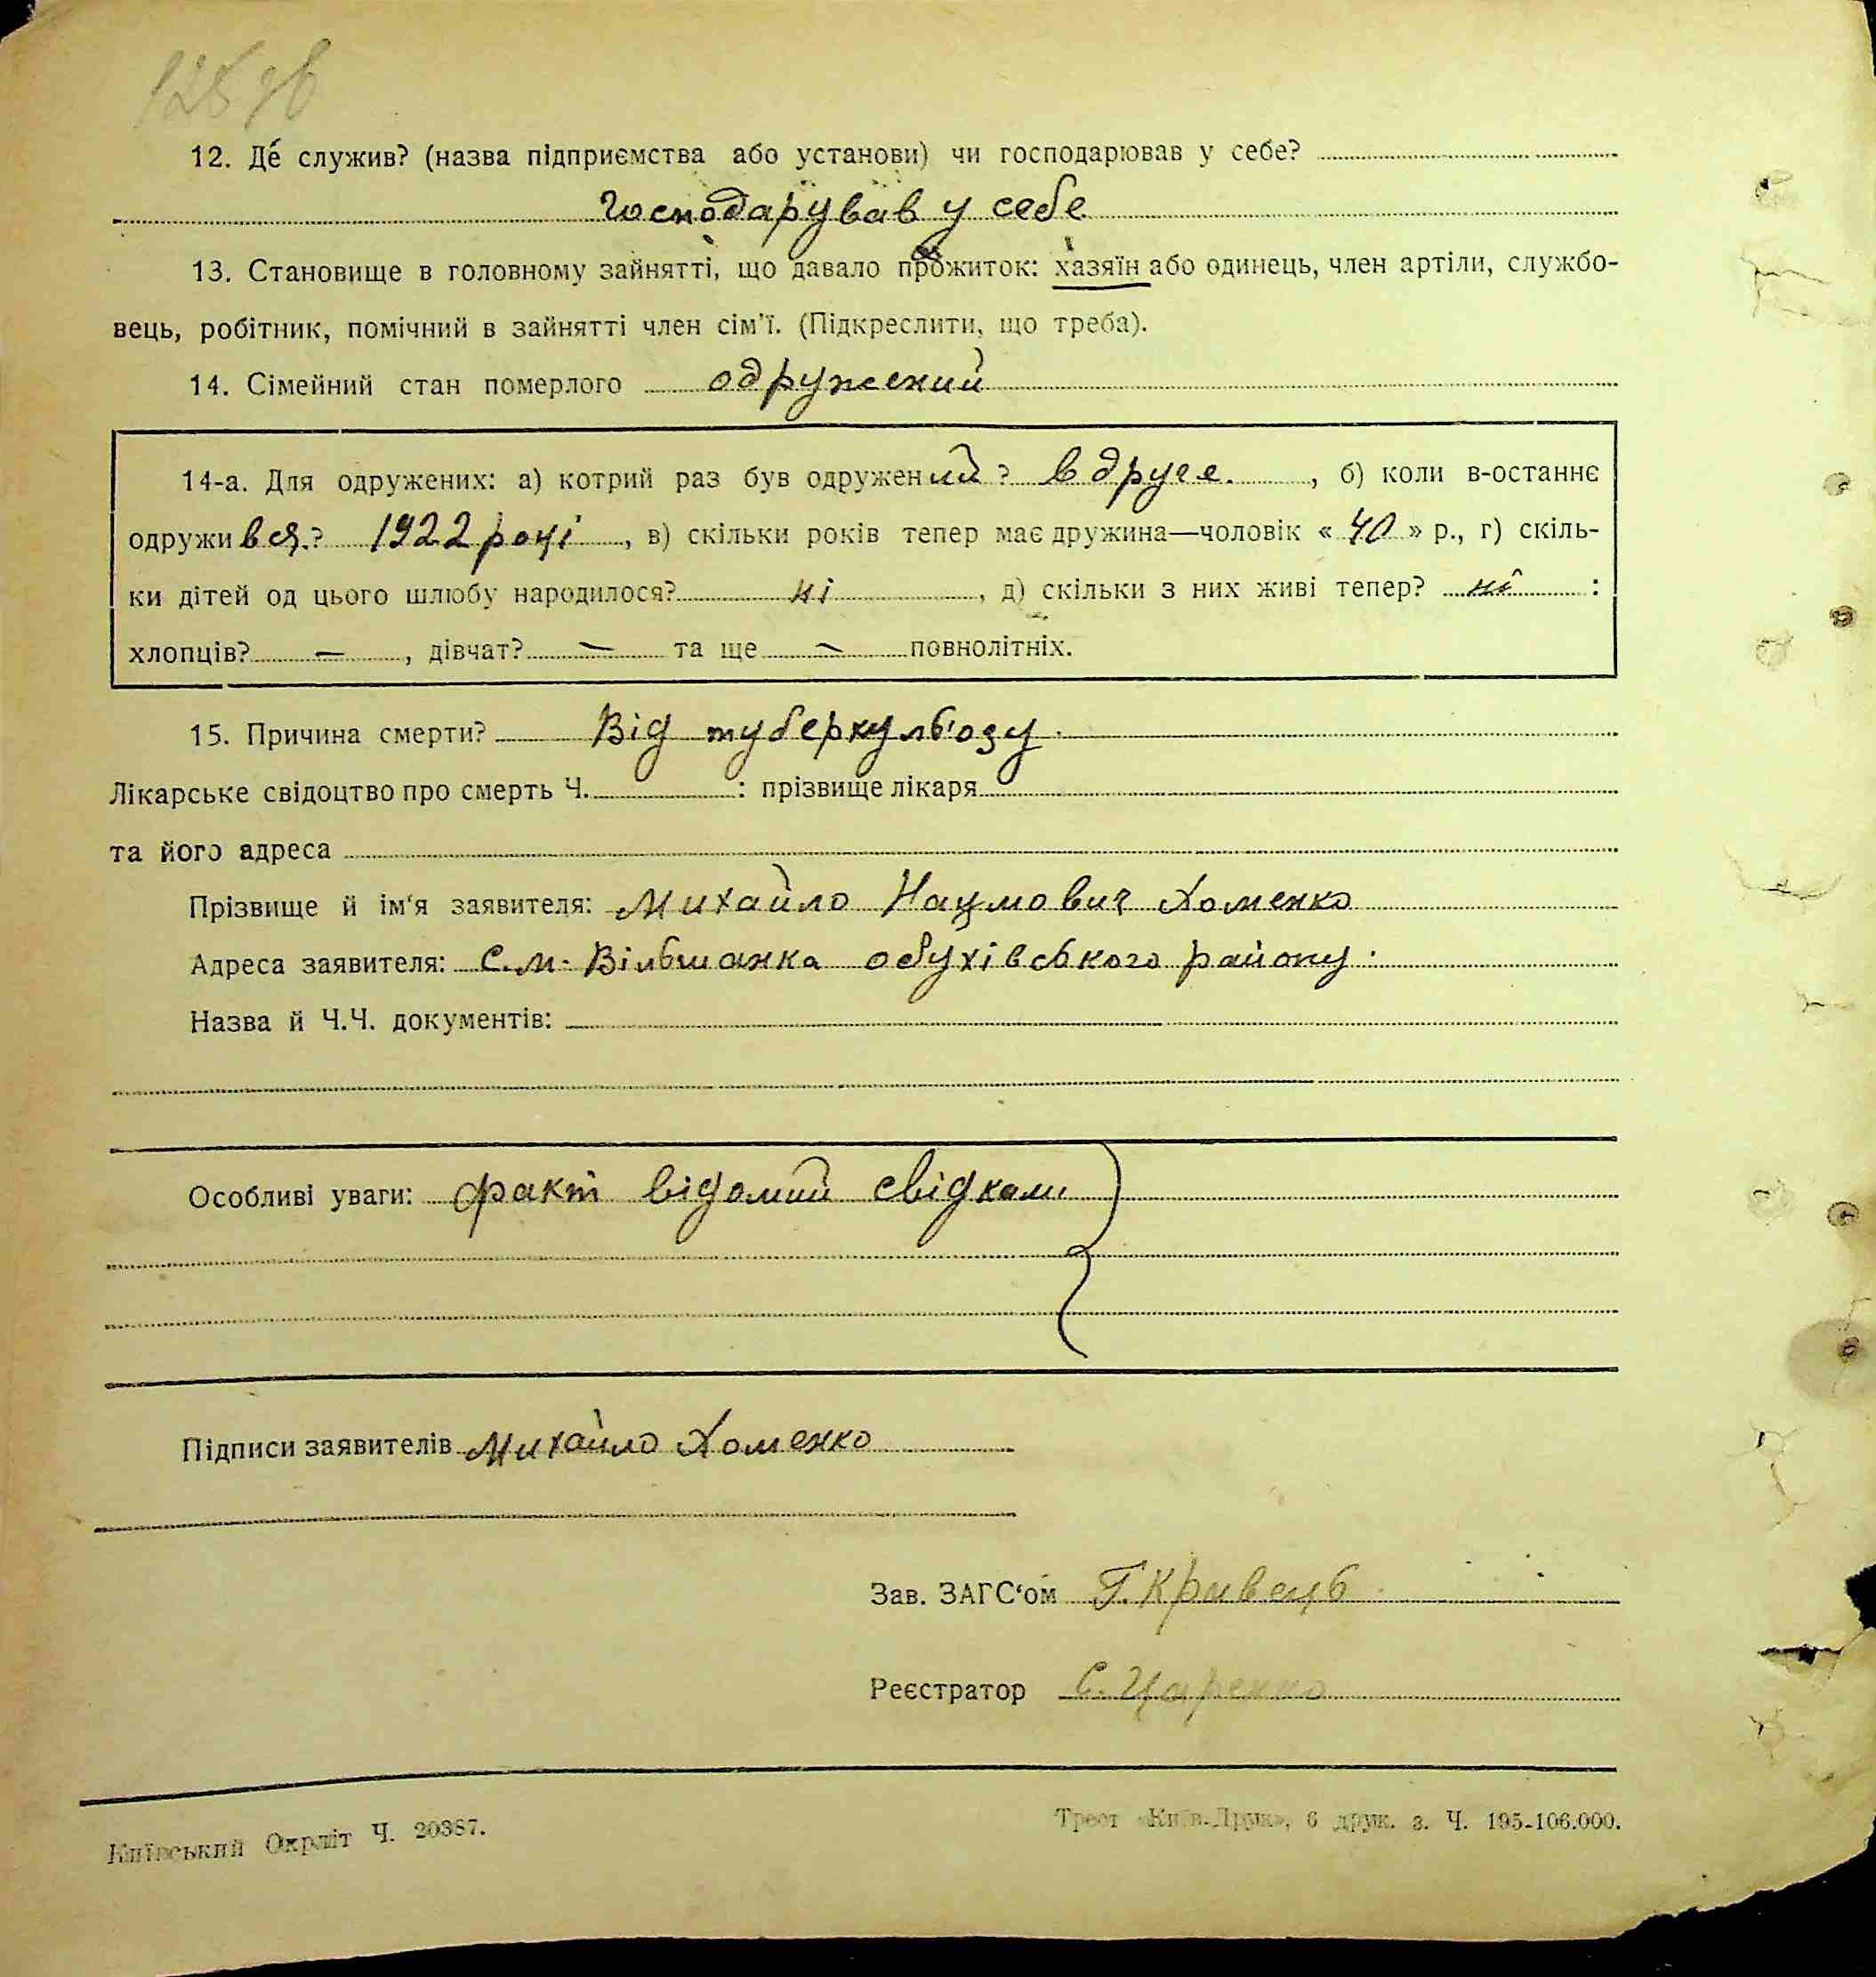 12. Де служив? (назва підприємства або установи) чи господарював у себе?
Господарував у себе
13. Становище в головному зайнятті, що давало прожиток: хазяїн або одинець, член артіли, службо-
вець, робітник, помічний в зайнятті член сім'ї. (Підкреслити, що треба).
14. Сімейний стан померлого одружений
14-а. Для одружених: а) котрий раз був одружений? вдруге, б) коли в-останнє
одружився? 1922 році, в) скільки років тепер має дружина—чоловік «40» р., г) скіль-
ки дітей од цього шлюбу народилося? ні, д) скільки з них живі тепер? ні :
хлопців? —, дівчат? — та ще — повнолітніх.
15. Причина смерти? Від туберкульозу.
Лікарське свідоцтво про смерть Ч. : прізвище лікаря
та його адреса
Прізвище й ім'я заявителя: Михайло Наумович Хоменко
Адреса заявителя: с.м. Вільшанка обухівського району.
Назва й Ч.Ч. документів:
Особливі уваги: факт відомий свідками
Підписи заявителів Михайло Хоменко
Зав. ЗАГС'ом Г. Кривець
Реєстратор С. Царенко
Київський Окрліт Ч. 20387.
Трест «Київ-Друк», 6 друк. з. Ч. 195-106.000.